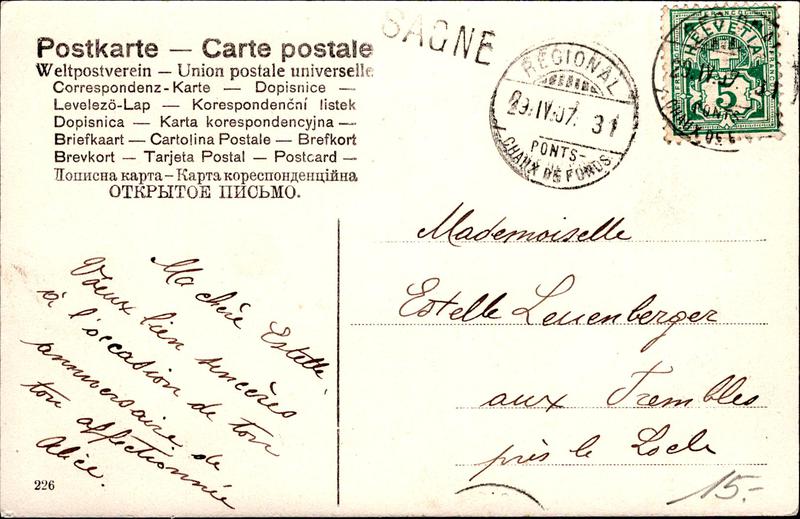 Postkarte — Carte postale
Weltpostverein — Union postale universelle
Correspondenz-Karte — Dopisnice —
Levelezö-Lap — Korespondenční listek
Dopisnica — Karta korespondencyjna —
Briefkaart — Cartolina Postale — Brefkort
Brevkort — Tarjeta Postal — Postcard —
Дописна карта — Карта кореспонденційна
ОТКРЫТОЕ ПИСЬМО.
SAGNE
REGIONAL
29.IV.07. 31
PONTS-
CHAUX DE FONDS.
HELVETIA
FRANCO
5
29.IV.07 31
PONTS-
Ma chère Estelle,
Voeux bien sincères
à l'occasion de ton
anniversaire de
ton affectionnée
Alice.
Mademoiselle
Estelle Leuenberger
aux Trembles
près le Locle
226
15.-